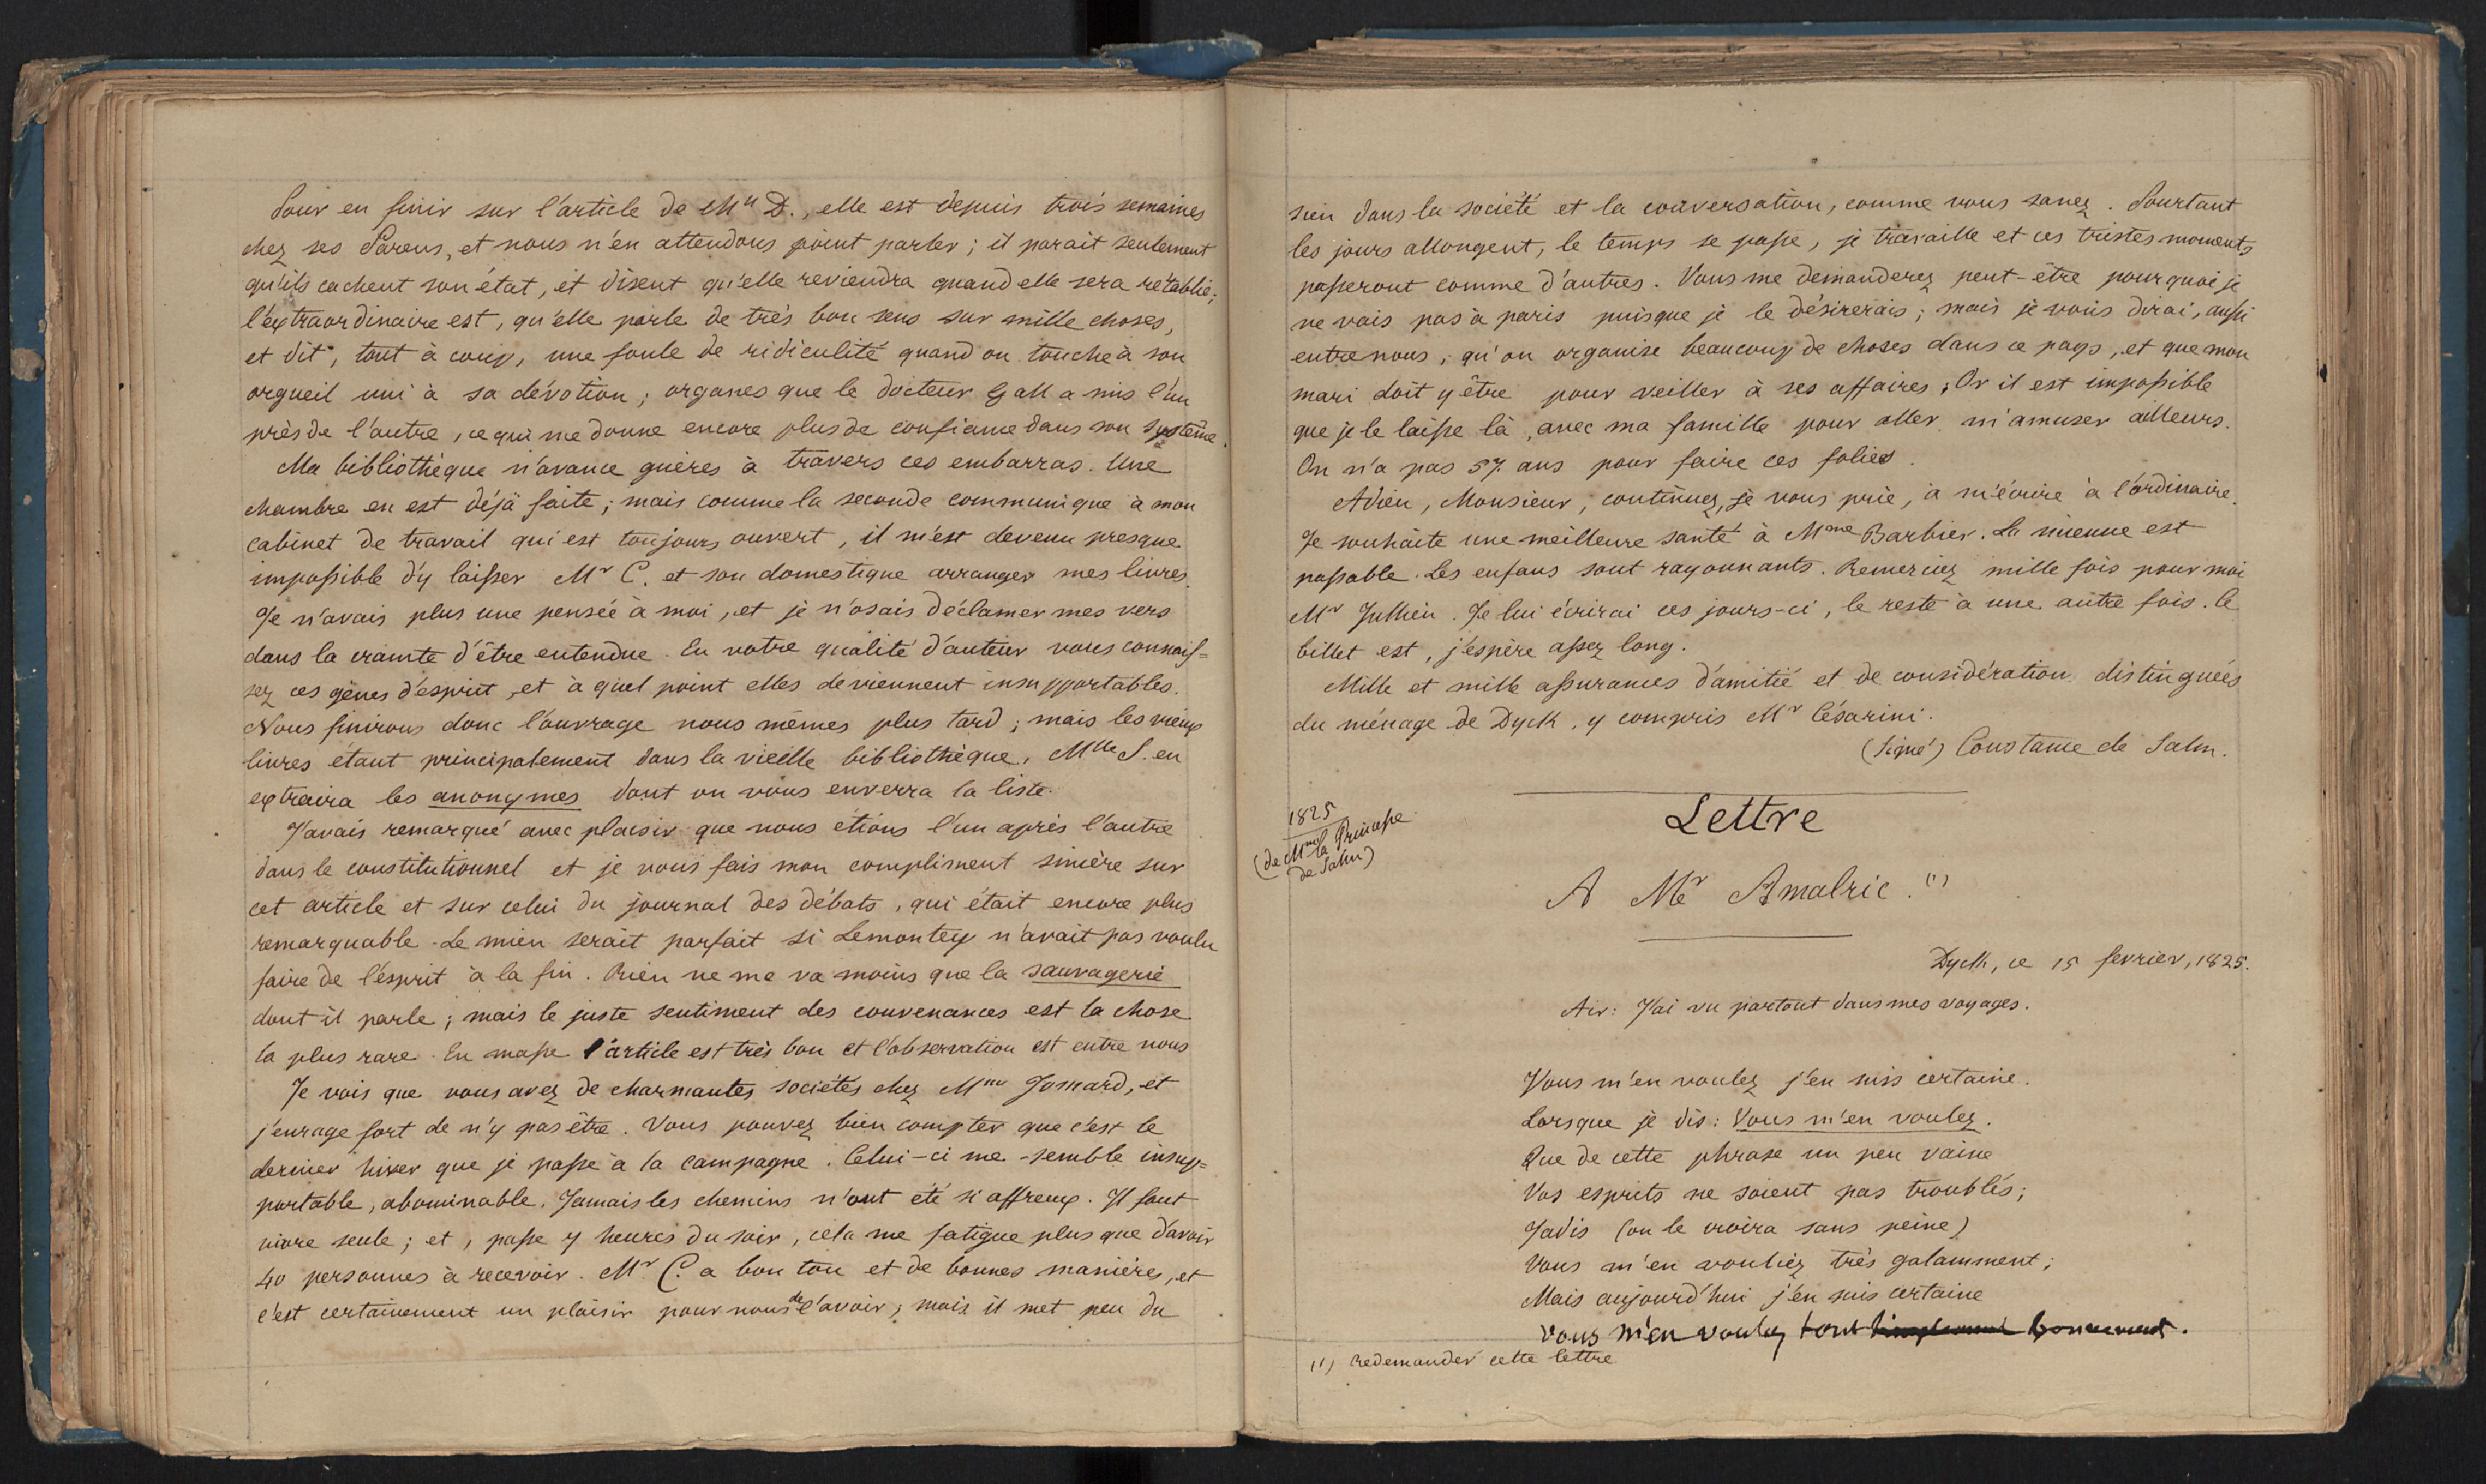 Pour en finir sur l'article de Mlle D., elle est depuis trois semaines
chez ses Parens, et nous n'en attendons point parler ; il parait seulement
qu'ils cachent son état, et disent qu'elle reviendra quand elle sera rétablie ;
l'extraordinaire est, qu'elle parle de très bon sens sur mille choses,
et dit, tout à coup, une foule de ridiculité quand on touche à son
orgueil uni à sa dévotion ; organes que le docteur Gall a mis l'un
près de l'autre, ce qui me donne encore plus de confiance dans son système.
Ma bibliothèque n'avance guères à travers ces embarras. Une
chambre en est déjà faite ; mais comme la seconde communique à mon
cabinet de travail qui est toujours ouvert, il m'est devenu presque
impossible d'y laisser Mr C. et son domestique arranger mes livres.
Je n'avais plus une pensée à moi, et je n'osais déclamer mes vers
dans la crainte d'être entendue. En votre qualité d'auteur vous connais=
sez ces gênes d'esprit, et à quel point elles deviennent insupportables.
Nous finirons donc l'ouvrage nous mêmes plus tard ; mais les vieux
livres étant principalement dans la vieille bibliothèque, Mlle S. en
extraira les anonymes dont on vous enverra la liste.
J'avais remarqué avec plaisir que nous étions l'un après l'autre
dans le constitutionnel et je vous fais mon compliment sincère sur
cet article et sur celui du journal des débats, qui était encore plus
remarquable. Le mien serait parfait si Lemontey n'avait pas voulu
faire de l'esprit à la fin. Rien ne me va moins que la sauvagerie
dont il parle ; mais le juste sentiment des convenances est la chose
la plus rare. En masse l'article est très bon et l'observation est entre nous
Je vois que vous avez de charmantes sociétés chez Mme Jomard, et
j'enrage fort de n'y pas être. Vous pouvez bien compter que c'est le
dernier hiver que je passe à la campagne. Celui-ci me semble insup=
portable, abominable. Jamais les chemins n'ont été si affreux. Il faut
vivre seule ; et, passé 7 heures du soir, cela me fatigue plus que d'avoir
40 personnes à recevoir. Mr C. a bon ton et de bonnes manières, et
c'est certainement un plaisir pour nous de l'avoir ; mais il met peu du
sien dans la société et la conversation, comme vous savez. Pourtant
les jours allongent, le temps se passe, je travaille et ces tristes moments
passeront comme d'autres. Vous me demanderez peut-être pourquoi je
ne vais pas à paris puisque je le désirerais ; mais je vous dirai, aussi
entre nous, qu'on organise beaucoup de choses dans ce pays, et que mon
mari doit y être pour veiller à ses affaires ; Or il est impossible
que je le laisse là, avec ma famille pour aller m'amuser ailleurs.
On n'a pas 57 ans pour faire ces folies.
Adieu, Monsieur, continuez, je vous prie, à m'écrire à l'ordinaire.
Je souhaite une meilleure santé à Mme Barbier. La mienne est
passable. Les enfans sont rayonnants. Remerciez mille fois pour moi
Mr Jullien. Je lui écrirai ces jours-ci, le reste à une autre fois. le
billet est, j'espère assez long.
Mille et mille assurances d'amitié et de considération distinguées
du ménage de Dyck, y compris Mr Césarini.
(signé) Constance de Salm.
1825
(de Mme la Princesse
de Salm)
Lettre
A Mr Amalric. (1)
Dyck, ce 15 fevrier, 1825.
Air : J'ai vu partout dans mes voyages.
Vous m'en voulez j'en suis certaine.
Lorsque je dis : Vous m'en voulez.
Que de cette phrase un peu vaine
Vos esprits ne soient pas troublés ;
Jadis (on le croira sans peine)
Vous m'en vouliez très galamment ;
Mais aujourd'hui j'en suis certaine
Vous m'en voulez tout simplement bonnement.
(1) Redemander cette lettre